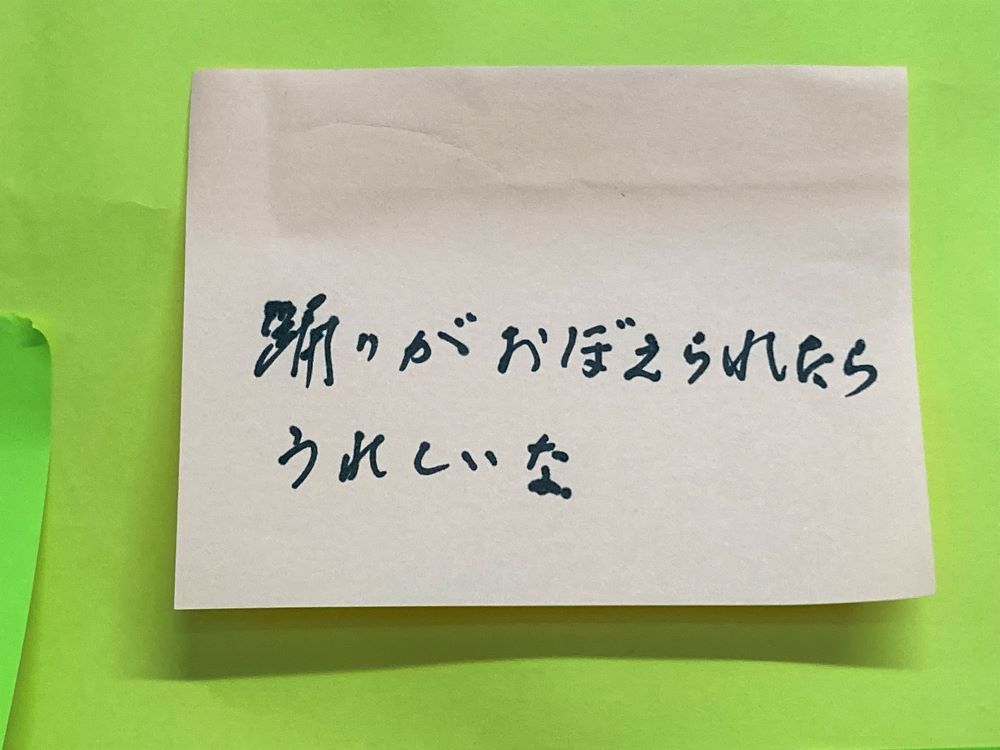 踊りがおぼえられたら
うれしいな